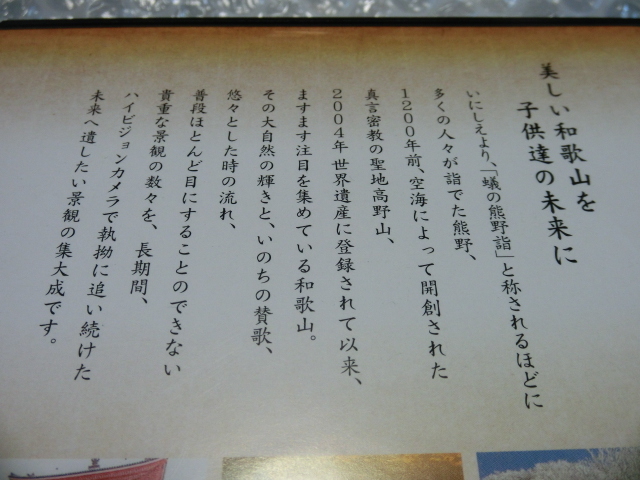 美しい和歌山を
子供達の未来に
いにしえより、「蟻の熊野詣」と称されるほどに
多くの人々が詣でた熊野、
1200年前、空海によって開創された
真言密教の聖地高野山、
2004年世界遺産に登録されて以来、
ますます注目を集めている和歌山。
その大自然の輝きと、いのちの賛歌、
悠々とした時の流れ、
普段ほとんど目にすることのできない
貴重な景観の数々を、長期間、
ハイビジョンカメラで執拗に追い続けた
未来へ遺したい景観の集大成です。